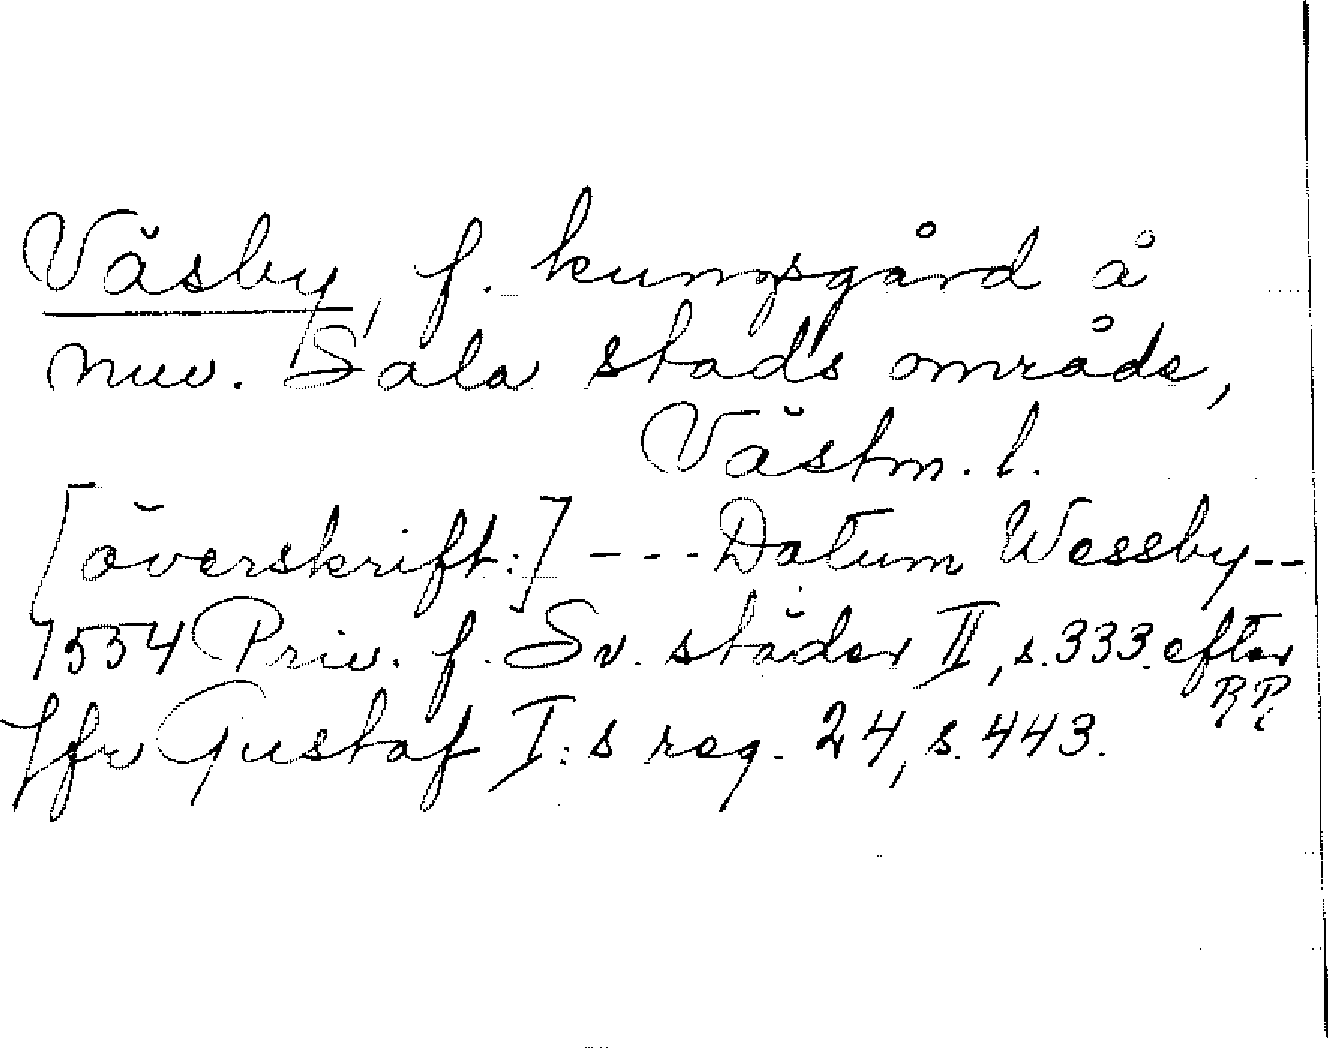 Väsby, f. kungsgård å
nuv. Sala stads område,
Västm. l.
[överskrift:] --- Datum Wessby--
1554 Priv. f. Sv. städer II, s. 333. efter
RR
Jfr Gustaf I:s reg. 24, s. 443.